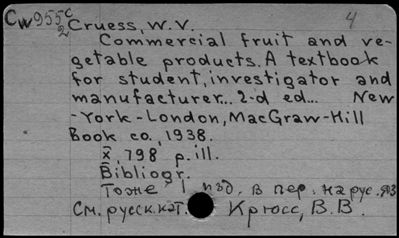 Cw955c 4
2 Cruess, W.V.
Commercial fruit and ve-
getable products. A textbook
for student, investigator and
manufacturer... 2-d ed... New
-York-London, MacGraw-Hill
Book co., 1938.
X, 798 p. ill.
Bibliogr.
Тоже 1 изд. в пер. на рус. яз
См. русск. кат. Крюсс, В.В.